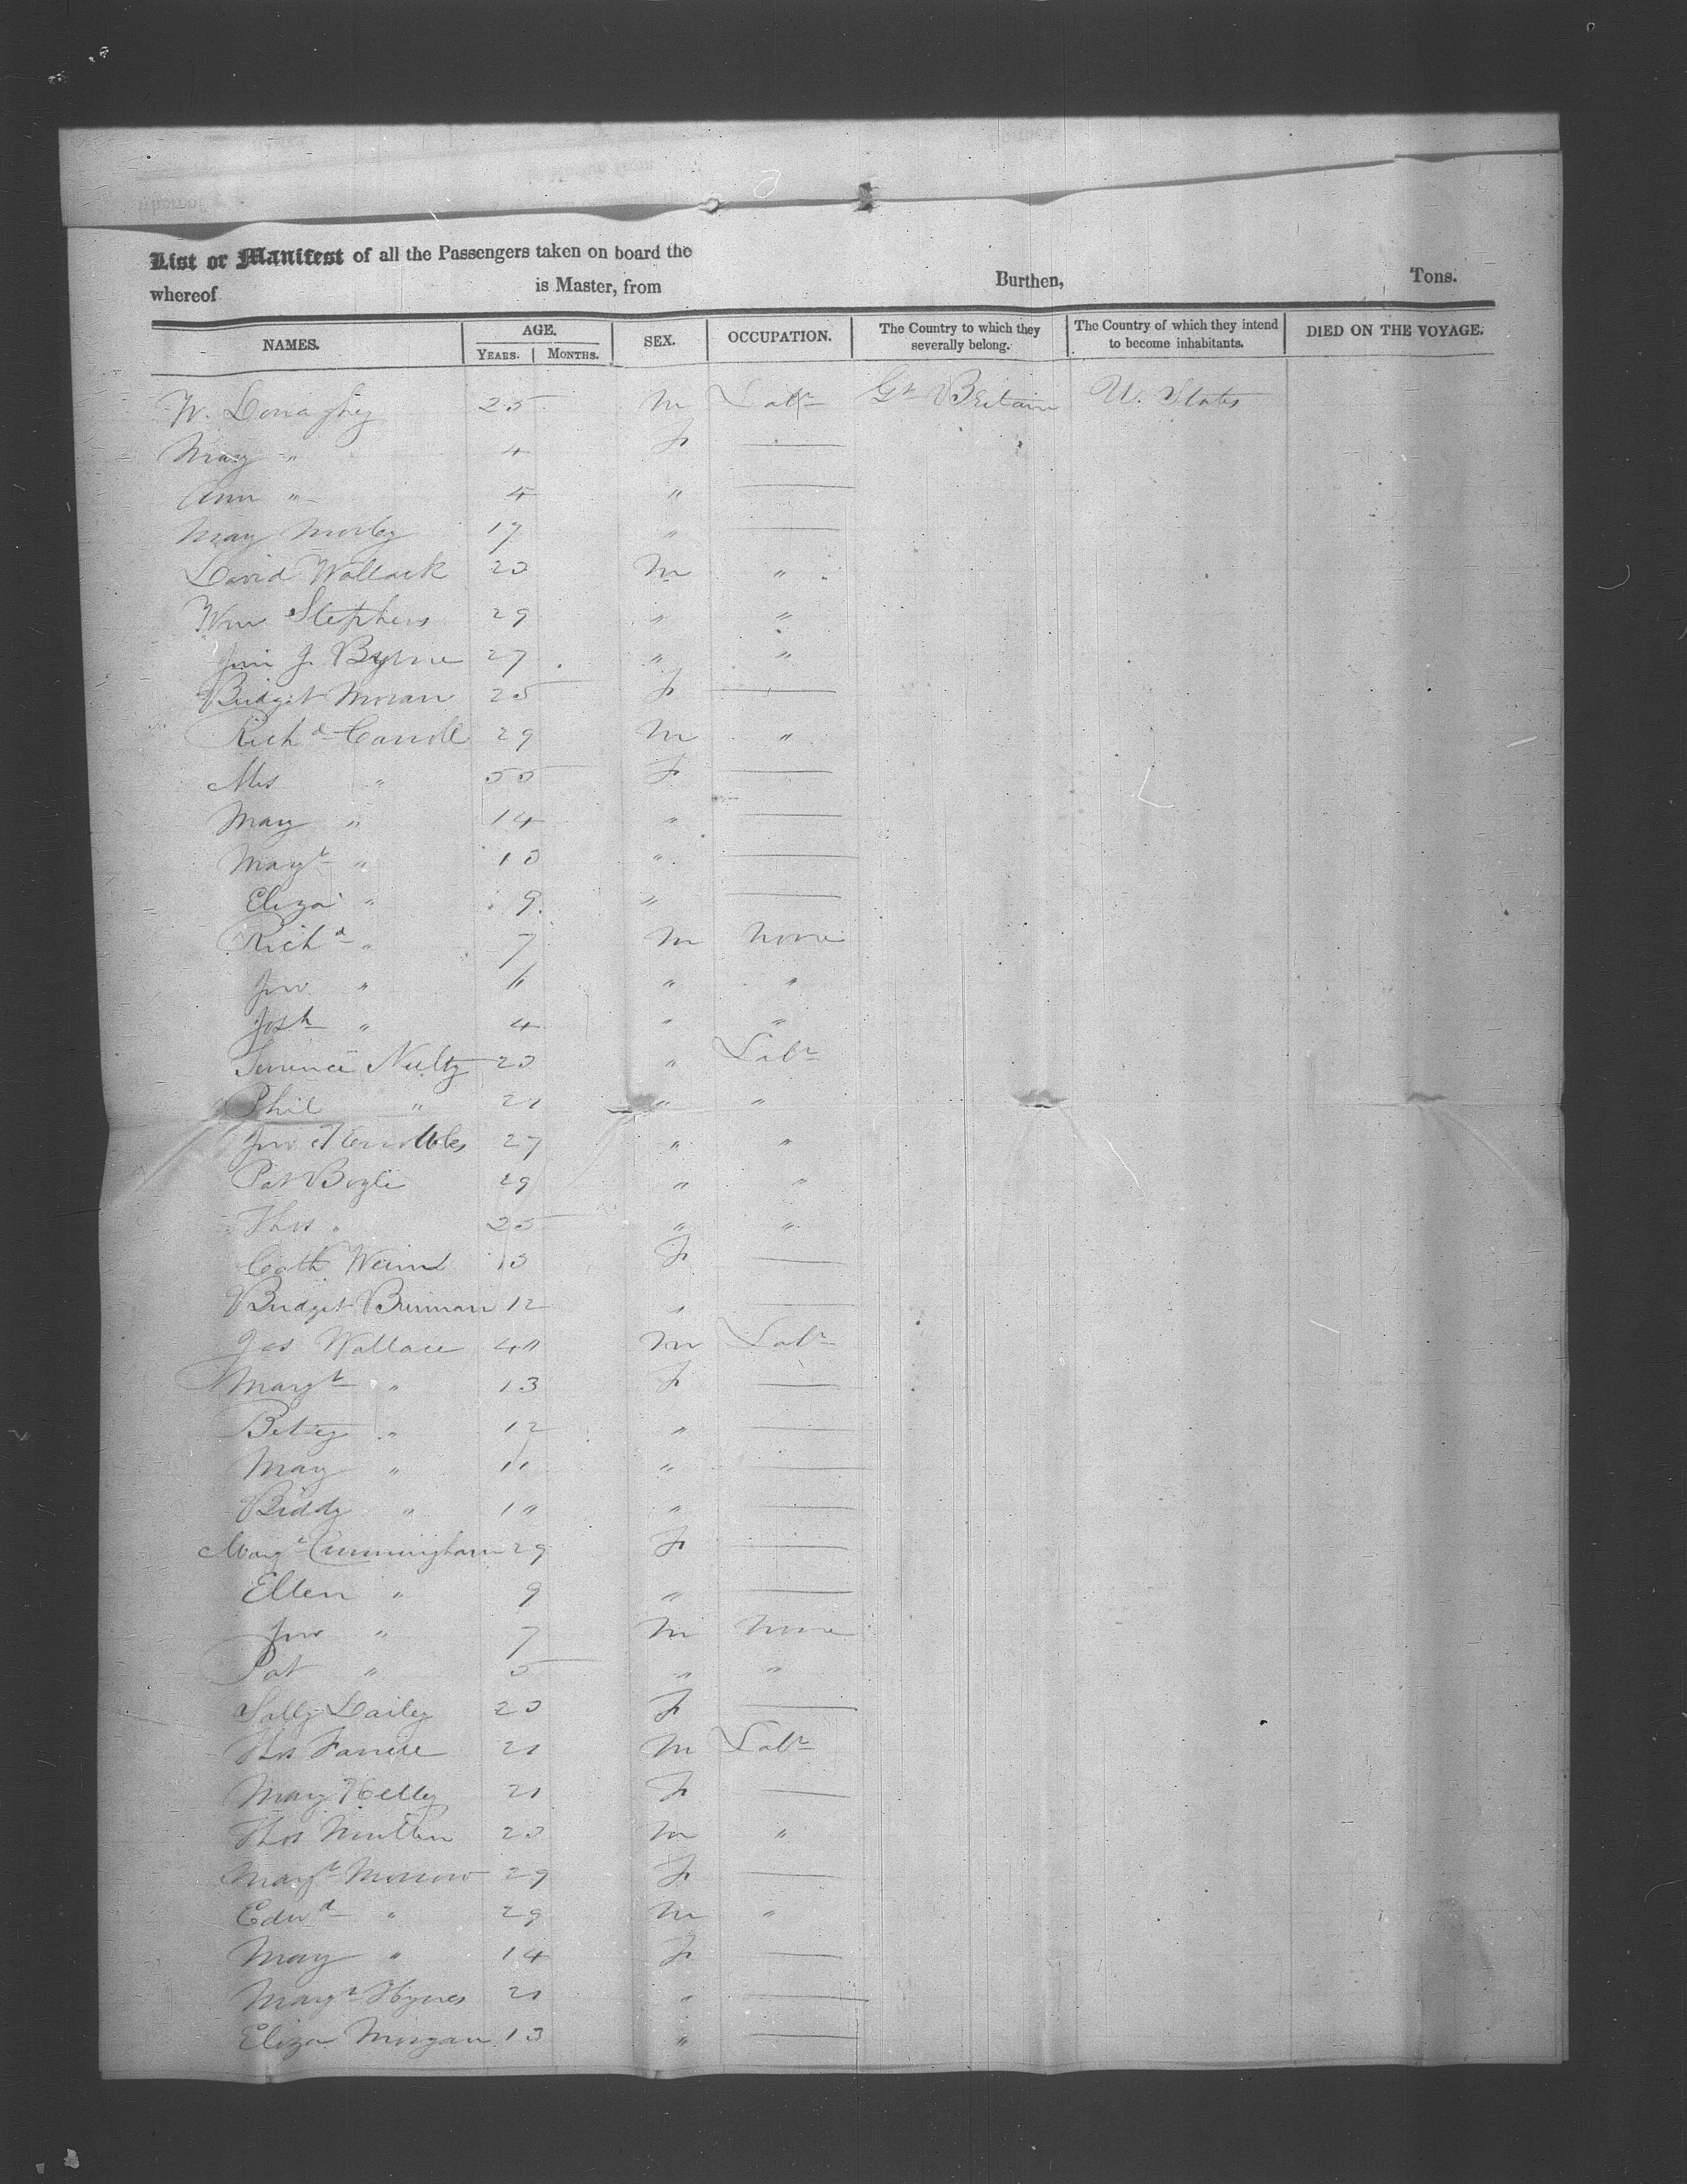 List or Manifest of all the Passengers taken on board the
whereof is Master, from Burthen, Tons.
NAMES. AGE. YEARS. MONTHS. SEX. OCCUPATION. The Country to which they severally belong. The Country of which they intend to become inhabitants. DIED ON THE VOYAGE.
W. Donaghy 25 M Labr Gt Britain U. States
Mary " 4 F —
Ann " 4 " —
Mary 19 " —
David Wallack 20 M "
Wm Stephens 29 " "
Jno J. Byrne 27 " "
Bridget Moran 25 F —
Richd Carroll 29 M "
Mrs " 55 F —
Mary " 14 " —
Margt " 10 " —
Eliza " 9 " —
Richd " 7 M None
Jno " 6 " "
Josh " 4 " "
Terrence Nulty 20 " Labr
Phil " 21 " "
Jno 27 " "
Pat Boyle 29 " "
Thos " 25 " "
Cath 10 F —
Bridget Brinnan 12 " —
Jas Wallace 40 M Labr
Margt " 13 F —
Betsy " 12 " —
Mary " 11 " —
Biddy " 10 " —
Margt Cunningham 29 F —
Ellen " 9 " —
Jno " 7 M None
Pat " 5 " "
Sally Dailey 20 F —
Thos Farrell 21 M Labr
Mary Kelly 21 F —
Thos Mullen 20 M "
Margt Morrow 29 F —
Edwd " 29 M "
Mary " 14 F —
Margt Hynes 21 " —
Eliza Morgan 13 " —